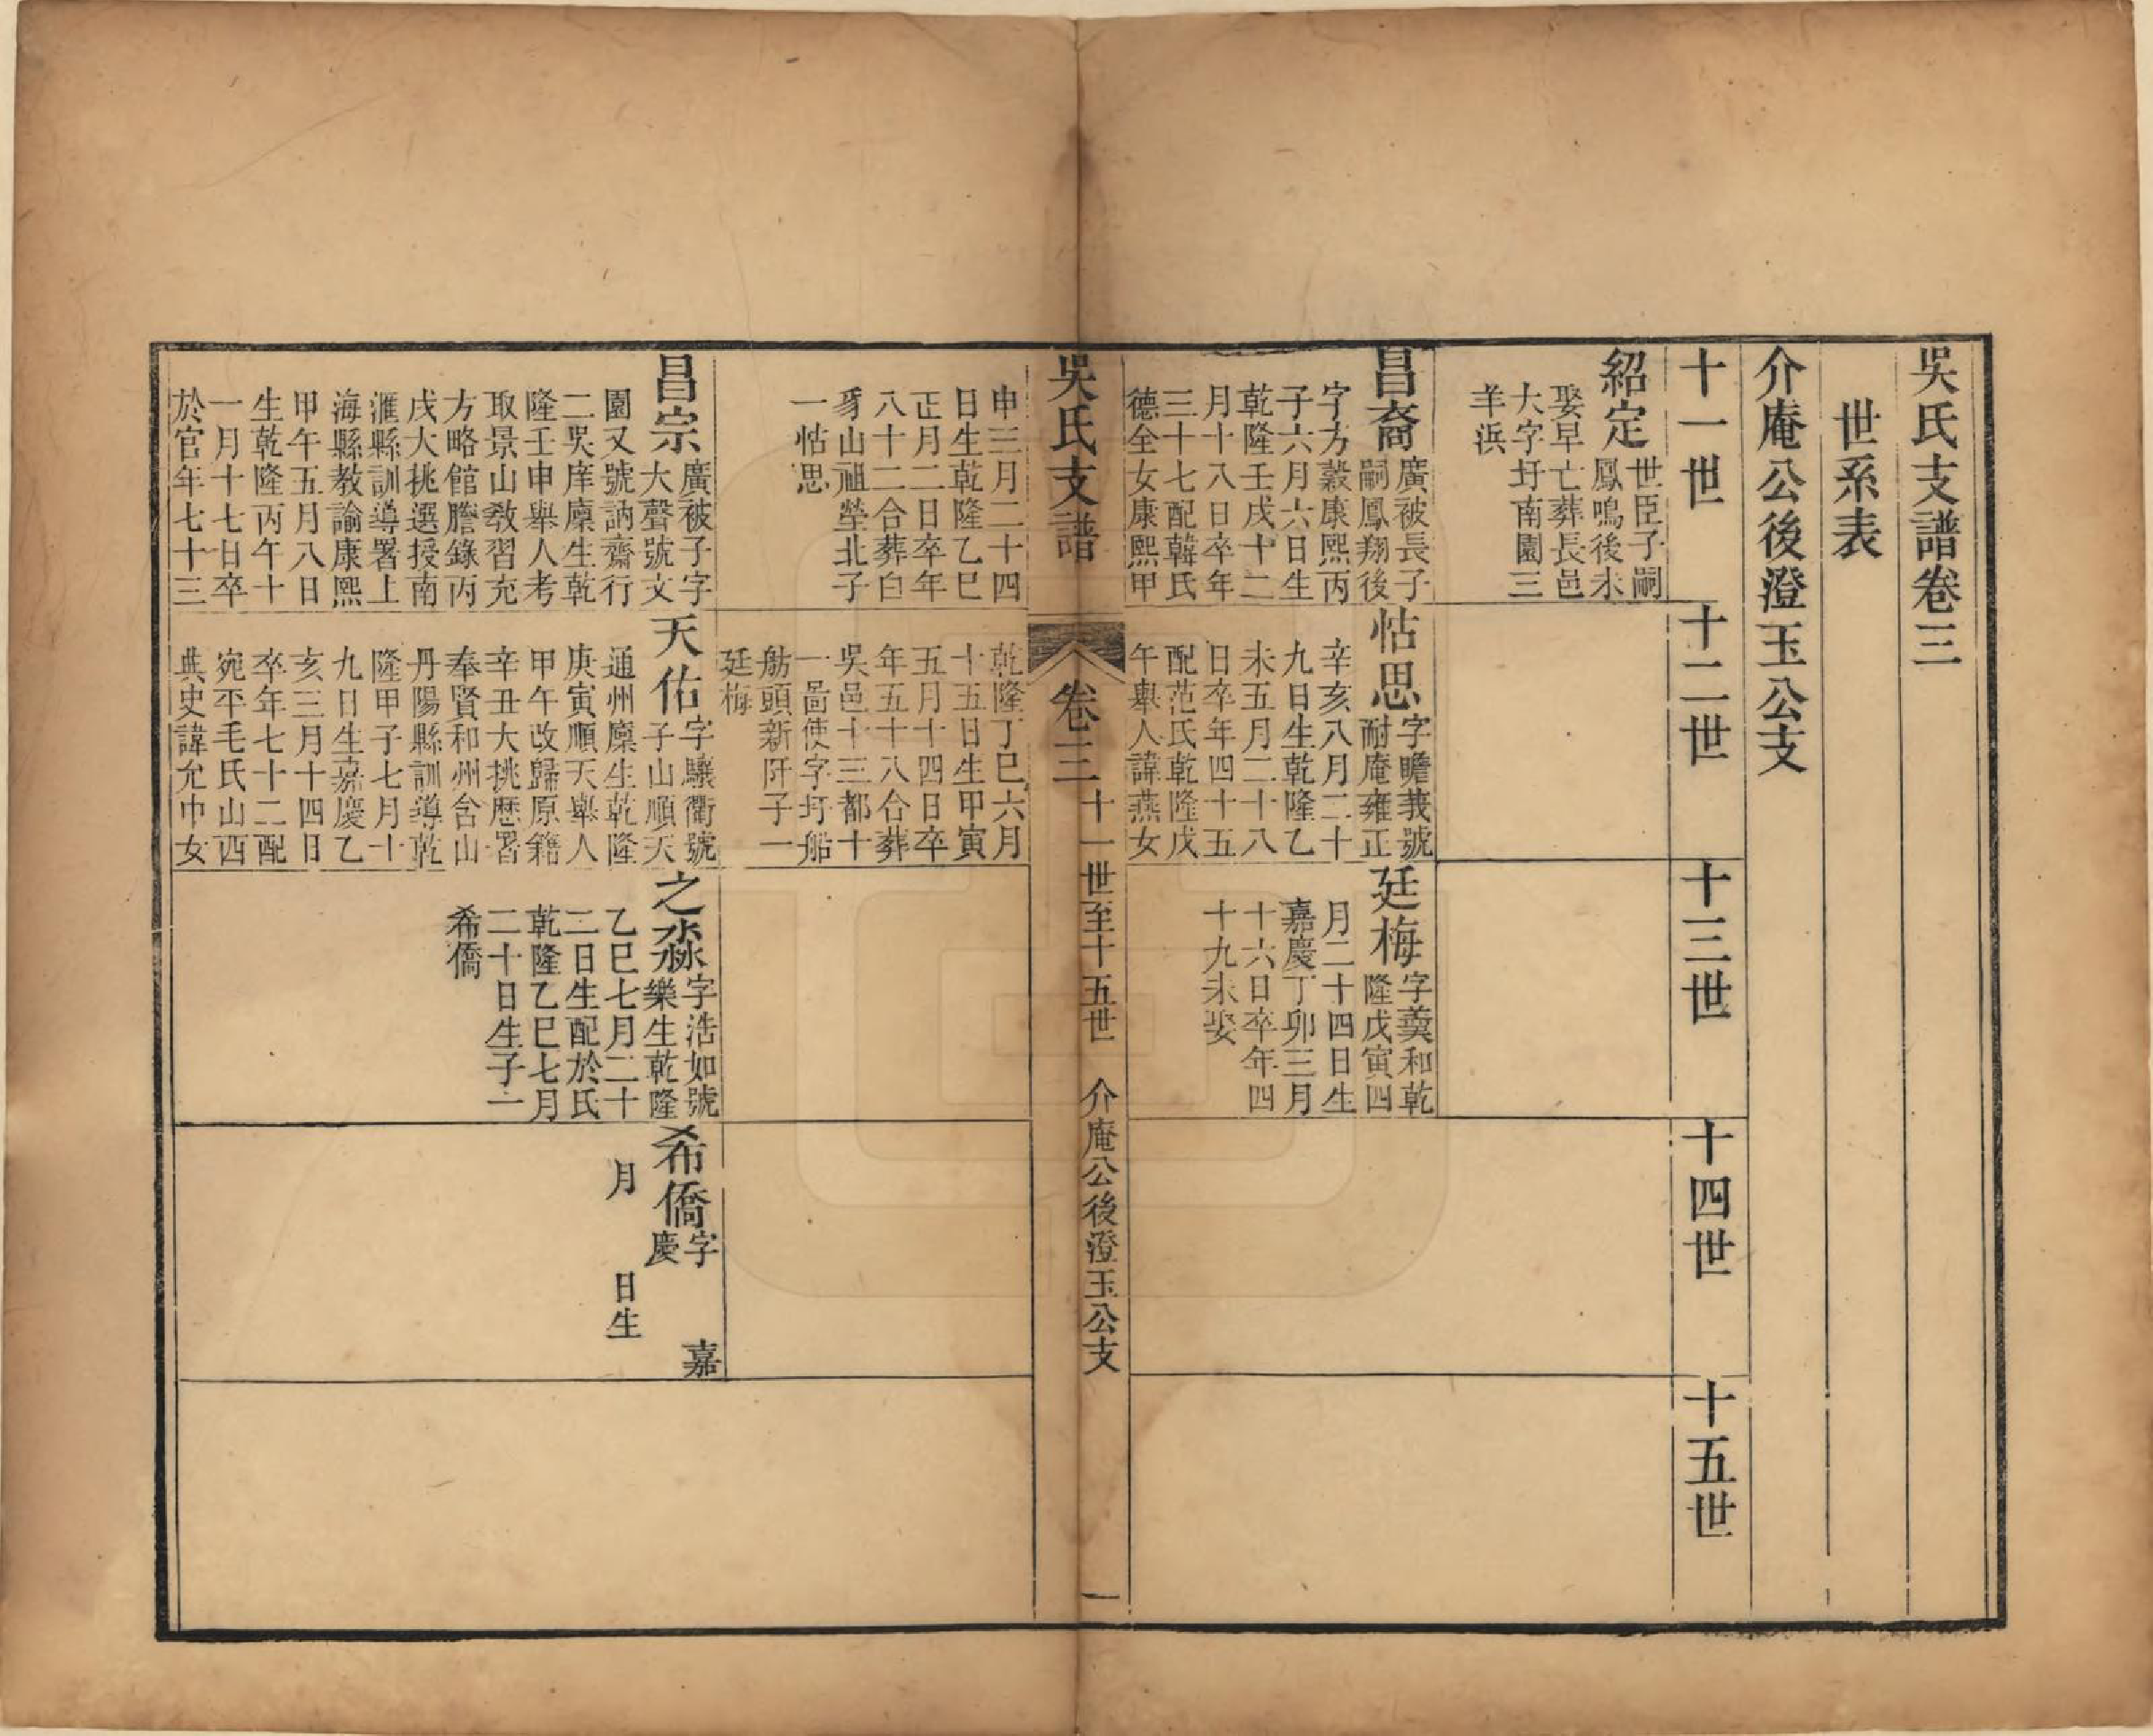 吳氏支譜卷三
世系表
介庵公後澄玉公支
十一世
十二世
十三世
十四世
十五世
紹定
世臣子嗣
鳳鳴後未
娶早亡葬長邑
大字圩南園三
羊浜
昌裔
廣被長子
嗣鳳翔後
字方糓康熙丙
子六月六日生
乾隆壬戌十二
月十八日卒年
三十七配韓氏
德全女康熙甲
怙思
字瞻莪號
耐庵雍正
辛亥八月二十
九日生乾隆乙
未五月二十八
日卒年四十五
配范氏乾隆戊
午舉人諱燕女
廷梅
字羹和乾
隆戊寅四
月二十四日生
嘉慶丁卯三月
十六日卒年四
十九未娶
吳氏支譜
卷三
十一世至十五世 介庵公後澄玉公支
一
申三月二十四
日生乾隆乙巳
正月二日卒年
八十二合葬白
豸山祖塋北子
一怙思
乾隆丁巳六月
十五日生甲寅
五月十四日卒
年五十八合葬
吳邑十三都十
一啚使字圩船
舫頭新阡子一
廷梅
昌宗
廣被子字
大聲號文
園又號訥齋行
二吳庠廩生乾
隆壬申舉人考
取景山敎習充
方略館謄錄丙
戌大挑選授南
滙縣訓導署上
海縣教諭康熙
甲午五月八日
生乾隆丙午十
一月十七日卒
於官年七十三
天佑
字驤衢號
子山順天
通州廩生乾隆
庚寅順天舉人
甲午改歸原籍
辛丑大挑歷署
奉賢和州含山
丹陽縣訓導乾
隆甲子七月十
九日生嘉慶乙
亥三月十四日
卒年七十二配
宛平毛氏山西
典史諱允中女
之淼
字浩如號
樂生乾隆
乙巳七月二十
二日生配於氏
乾隆乙巳七月
二十日生子一
希僑
希僑
字 嘉
慶
月 日生